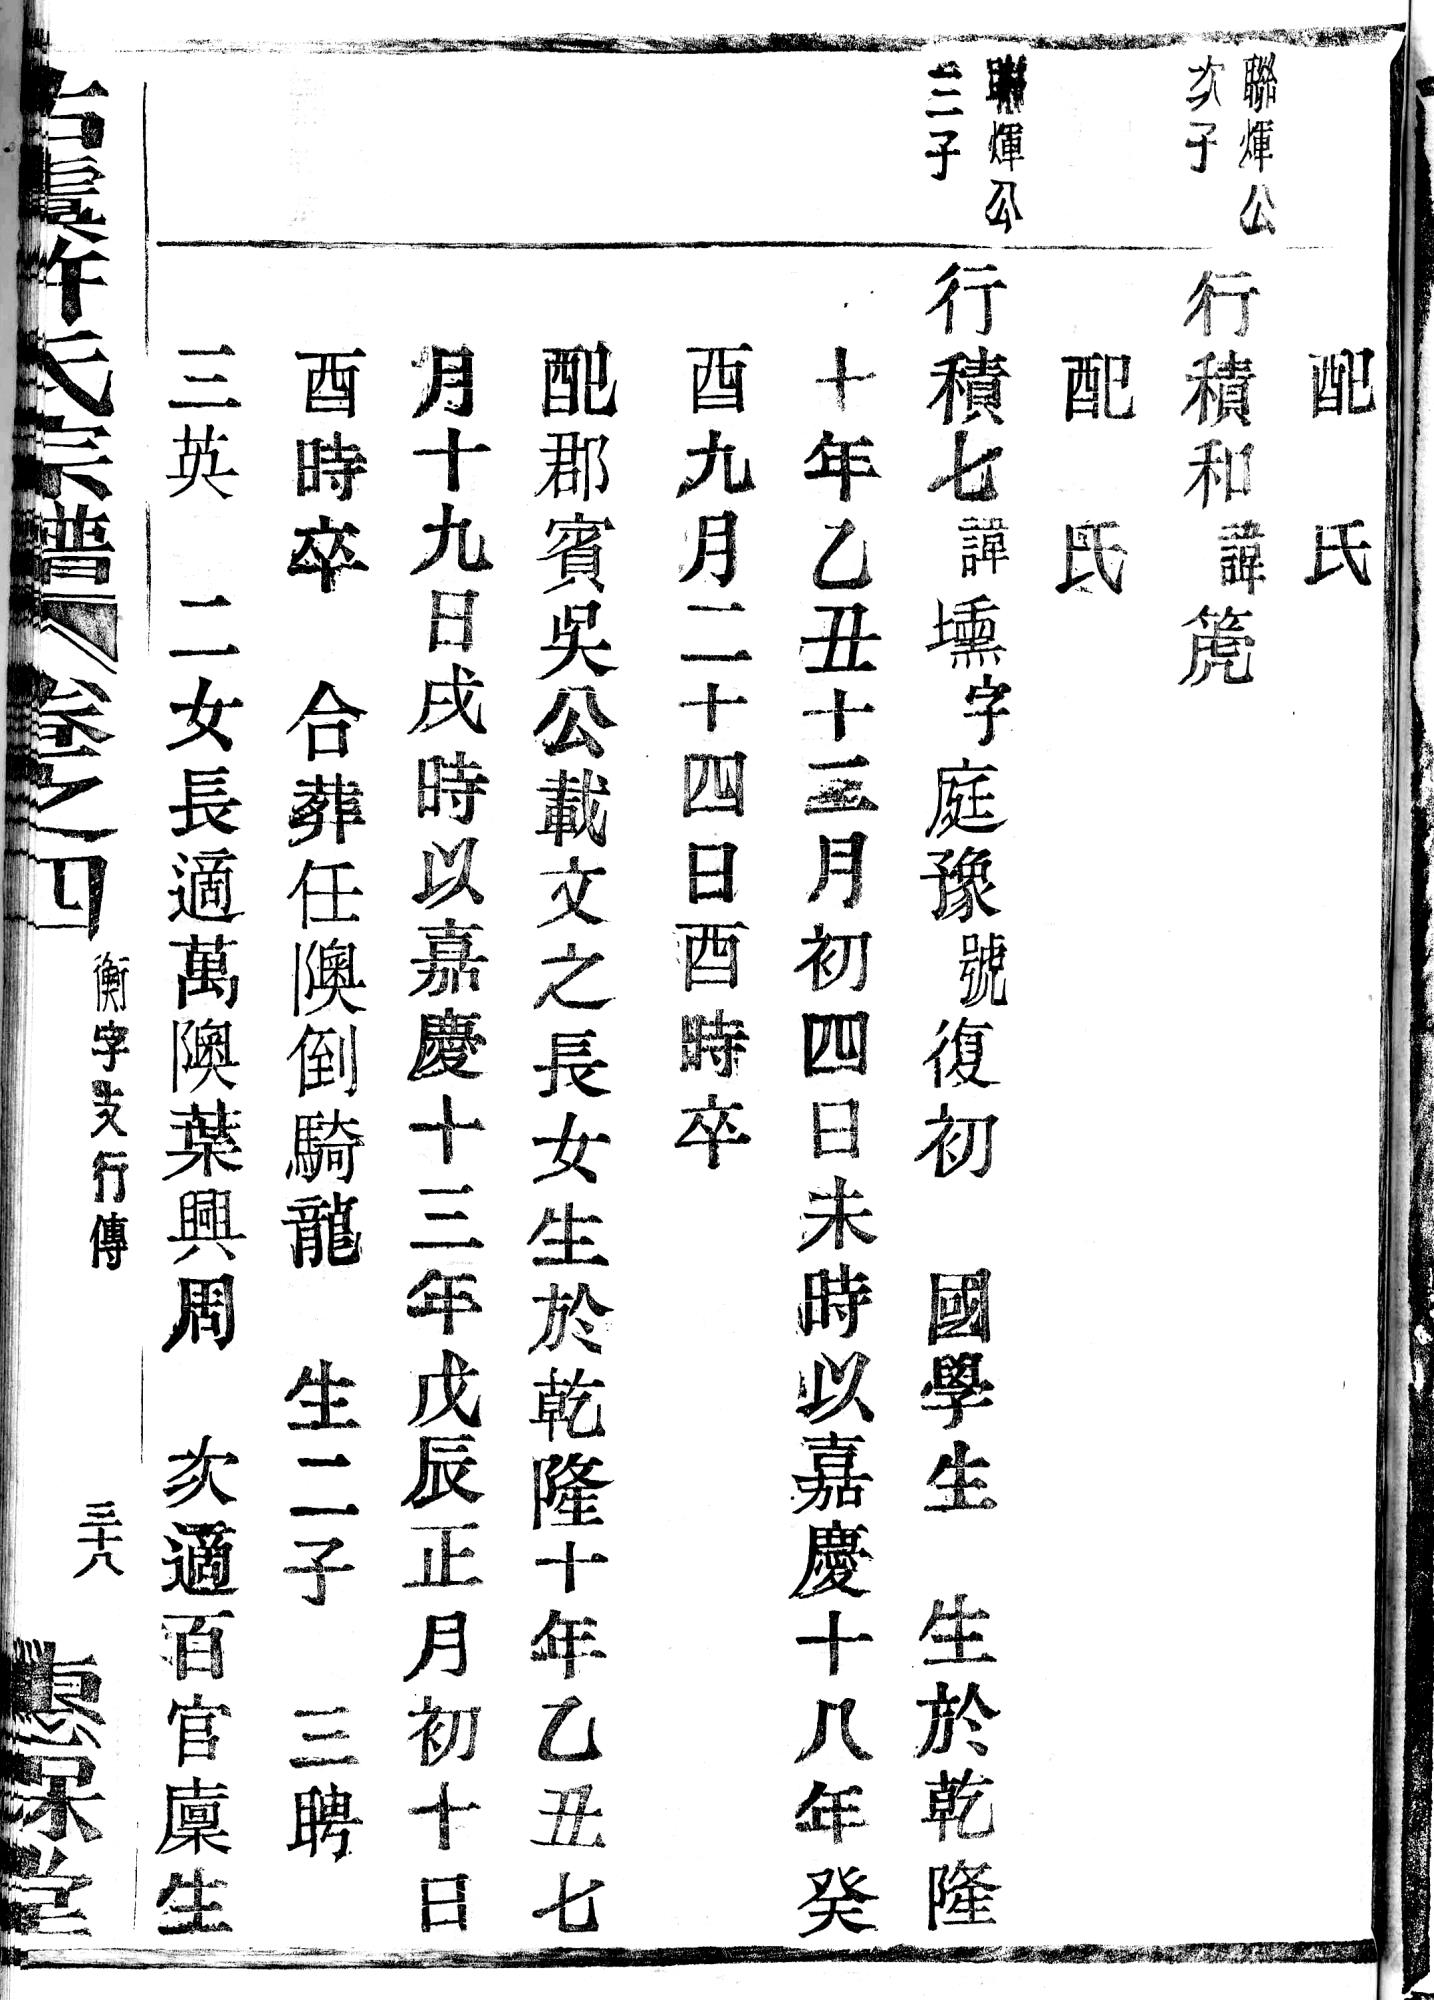 配　氏
聯煇公
次子
行積和諱篪
配　氏
聯煇公
三子
行積七諱壎字庭豫號復初　國學生　生於乾隆
十年乙丑十三月初四日未時以嘉慶十八年癸
酉九月二十四日酉時卒
配郡賓吳公載文之長女生於乾隆十年乙丑七
月十九日戌時以嘉慶十三年戊辰正月初十日
酉時卒　合葬任隩倒騎龍　生二子　三聘
三英　二女長適萬隩葉興周　次適百官廩生
古虞許氏宗譜　卷之四
衡字支行傳
三十八
惠保堂